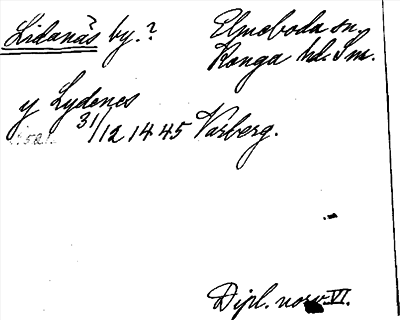 Lidanäs by.?
Elmeboda sn.
Konga hd. Sm.
y Lydenes
31/12 1445 Varberg.
Dipl. norv. VI.